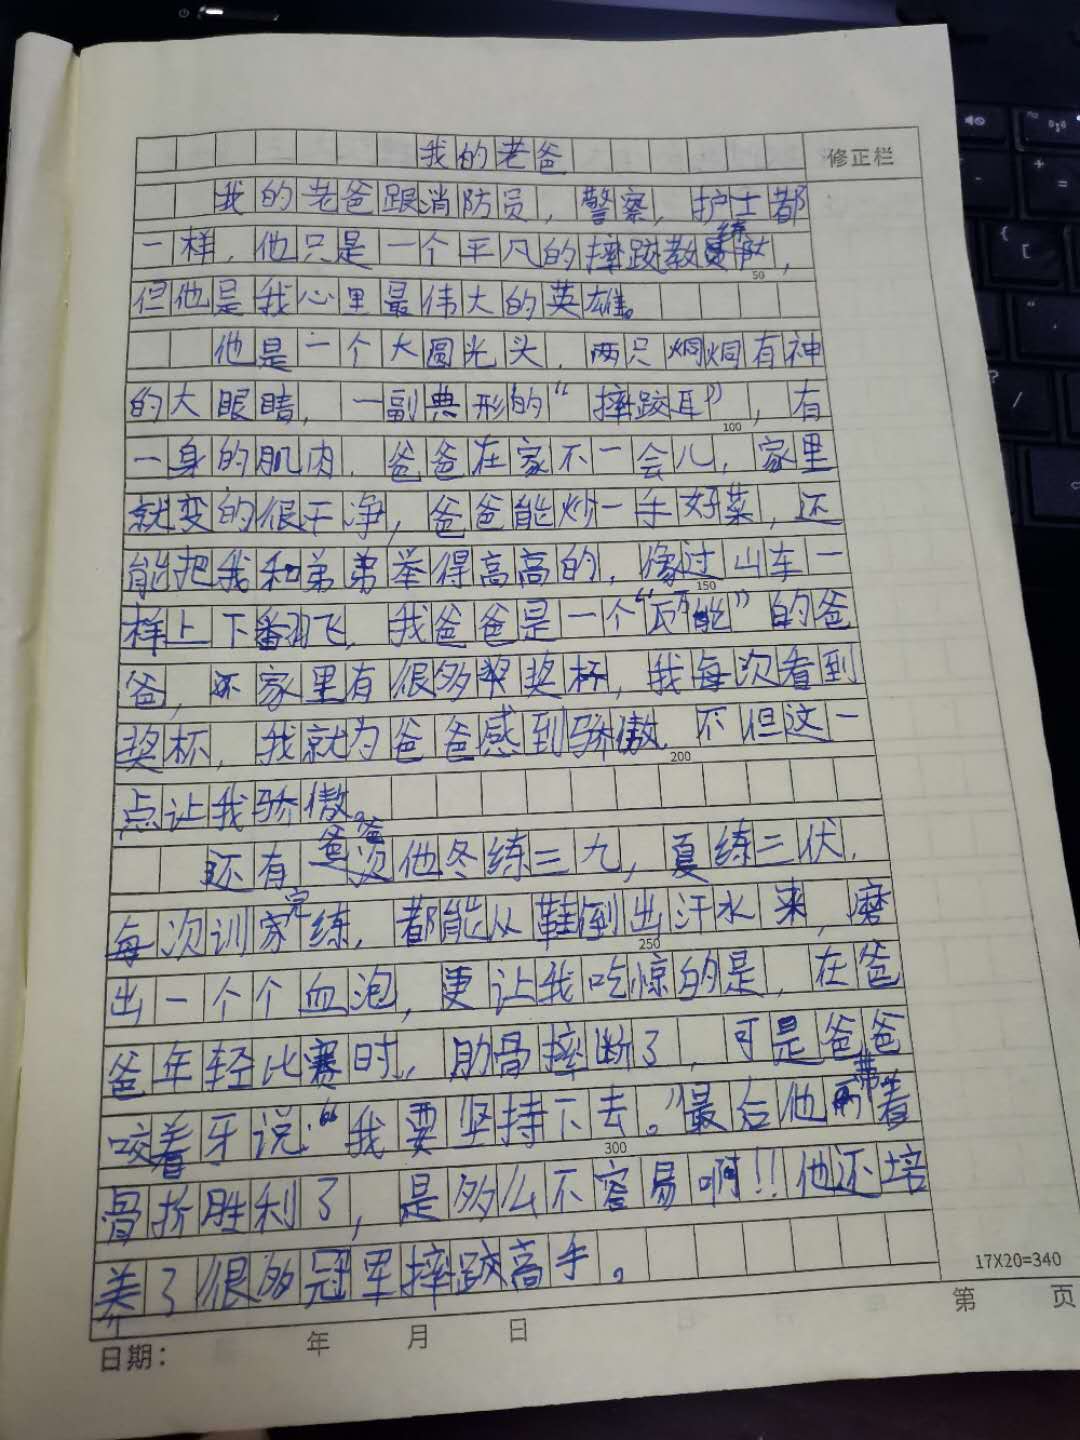 我的老爸
修正栏
我的老爸跟消防员，警察，护士都
一样，他只是一个平凡的摔跤教练，
50
但他是我心里最伟大的英雄。
他是一个大圆光头，两只炯炯有神
的大眼睛，一副典形的“摔跤耳”，有
100
一身的肌肉，爸爸在家不一会儿，家里
就变的很干净，爸爸能炒一手好菜，还
能把我和弟弟举得高高的，像过山车一
150
样上下翻飞，我爸爸是一个“万能”的爸
爸，家里有很多奖杯，我每次看到
奖杯，我就为爸爸感到骄傲，不但这一
200
点让我骄傲。
还有爸爸他冬练三九，夏练三伏，
每次训完练，都能从鞋倒出汗水来，磨
250
出一个个血泡，更让我吃惊的是，在爸
爸年轻比赛时，肋骨摔断了，可是爸爸
咬着牙说：“我要坚持下去。”最后他带着
300
骨折胜利了，是多么不容易啊!!他还培
养了很多冠军摔跤高手。
17X20=340
日期： 年 月 日 第 页